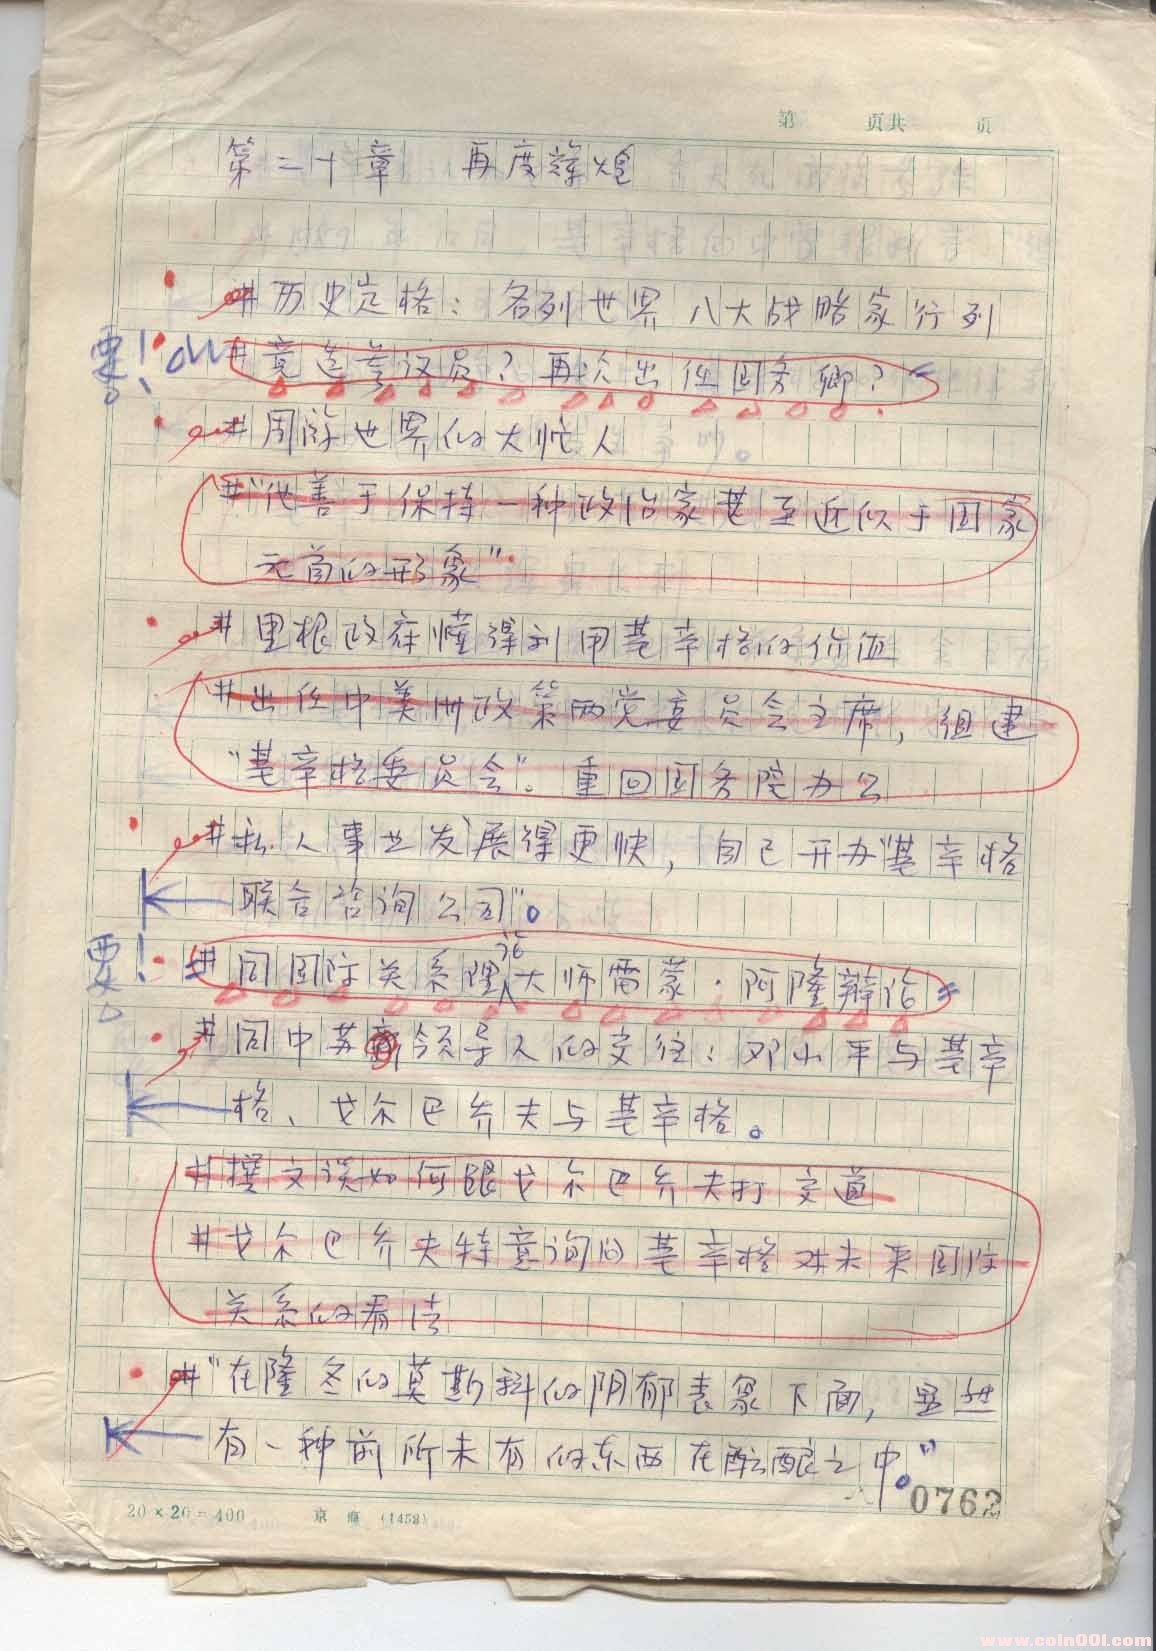 第 页共 页
第二十章 再度辉煌
#历史定格：名列世界八大战略家行列
要！ #竞选参议员？再次出任国务卿？
#周游世界的大忙人
#“他善于保持一种政治家甚至近似于国家
元首的形象”
#里根政府懂得利用基辛格的价值
#出任中美洲政策两党委员会主席，组建
“基辛格委员会”。重回国务院办公
#私人事业发展得更快，自己开办“基辛格
联合咨询公司”。
要！ #同国际关系理论大师雷蒙·阿隆辩论
#同中苏领导人的交往：邓小平与基辛
格、戈尔巴乔夫与基辛格。
#撰文谈如何跟戈尔巴乔夫打交道
#戈尔巴乔夫特意询问基辛格对未来国际
关系的看法
#“在隆冬的莫斯科的阴郁表象下面，显然
有一种前所未有的东西在酝酿之中。”
0762
20×20=400 京 (1458)
www.coin001.com